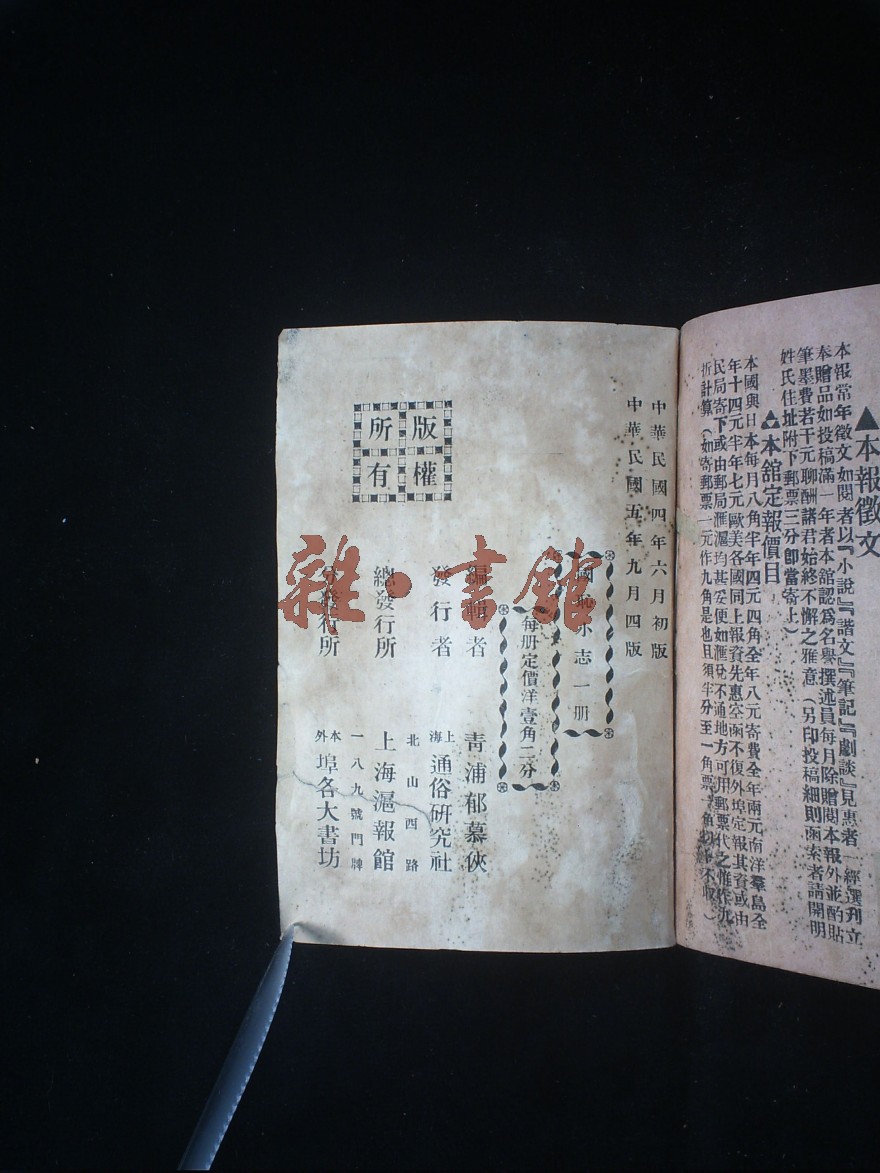 ▲本報徵文
本報常年徵文如閱者以『小說』『諧文』『筆記』『劇談』見惠者一經選刊立
奉贈品如投稿滿一年者本舘認爲名譽撰述員每月除贈閱本報外並酌貼
筆墨費若干元聊酬諸君始終不懈之雅意(另印投稿細則函索者請開明
姓氏住址附下郵票三分卽當寄上)
本舘定報價目
本國與日本每月八角半年四元四角全年八元寄費全年兩元南洋羣島全
年十四元半年七元歐美各國同上報資先惠空函不復外埠定報其資或由
民局寄下或由郵局滙寄均甚妥便如滙兌不通地方可用郵票代之惟作九
折計算(如寄郵票一元作九角是也且須半分至一角票
中華民國四年六月初版
中華民國五年九月四版
國恥小志一册
每册定價洋壹角二分
編輯者 靑浦郁慕俠
發行者 上海通俗研究社
北山西路
總發行所 上海滬報館
一八九號門牌
分發行所 本外埠各大書坊
版權所有
雜·書館